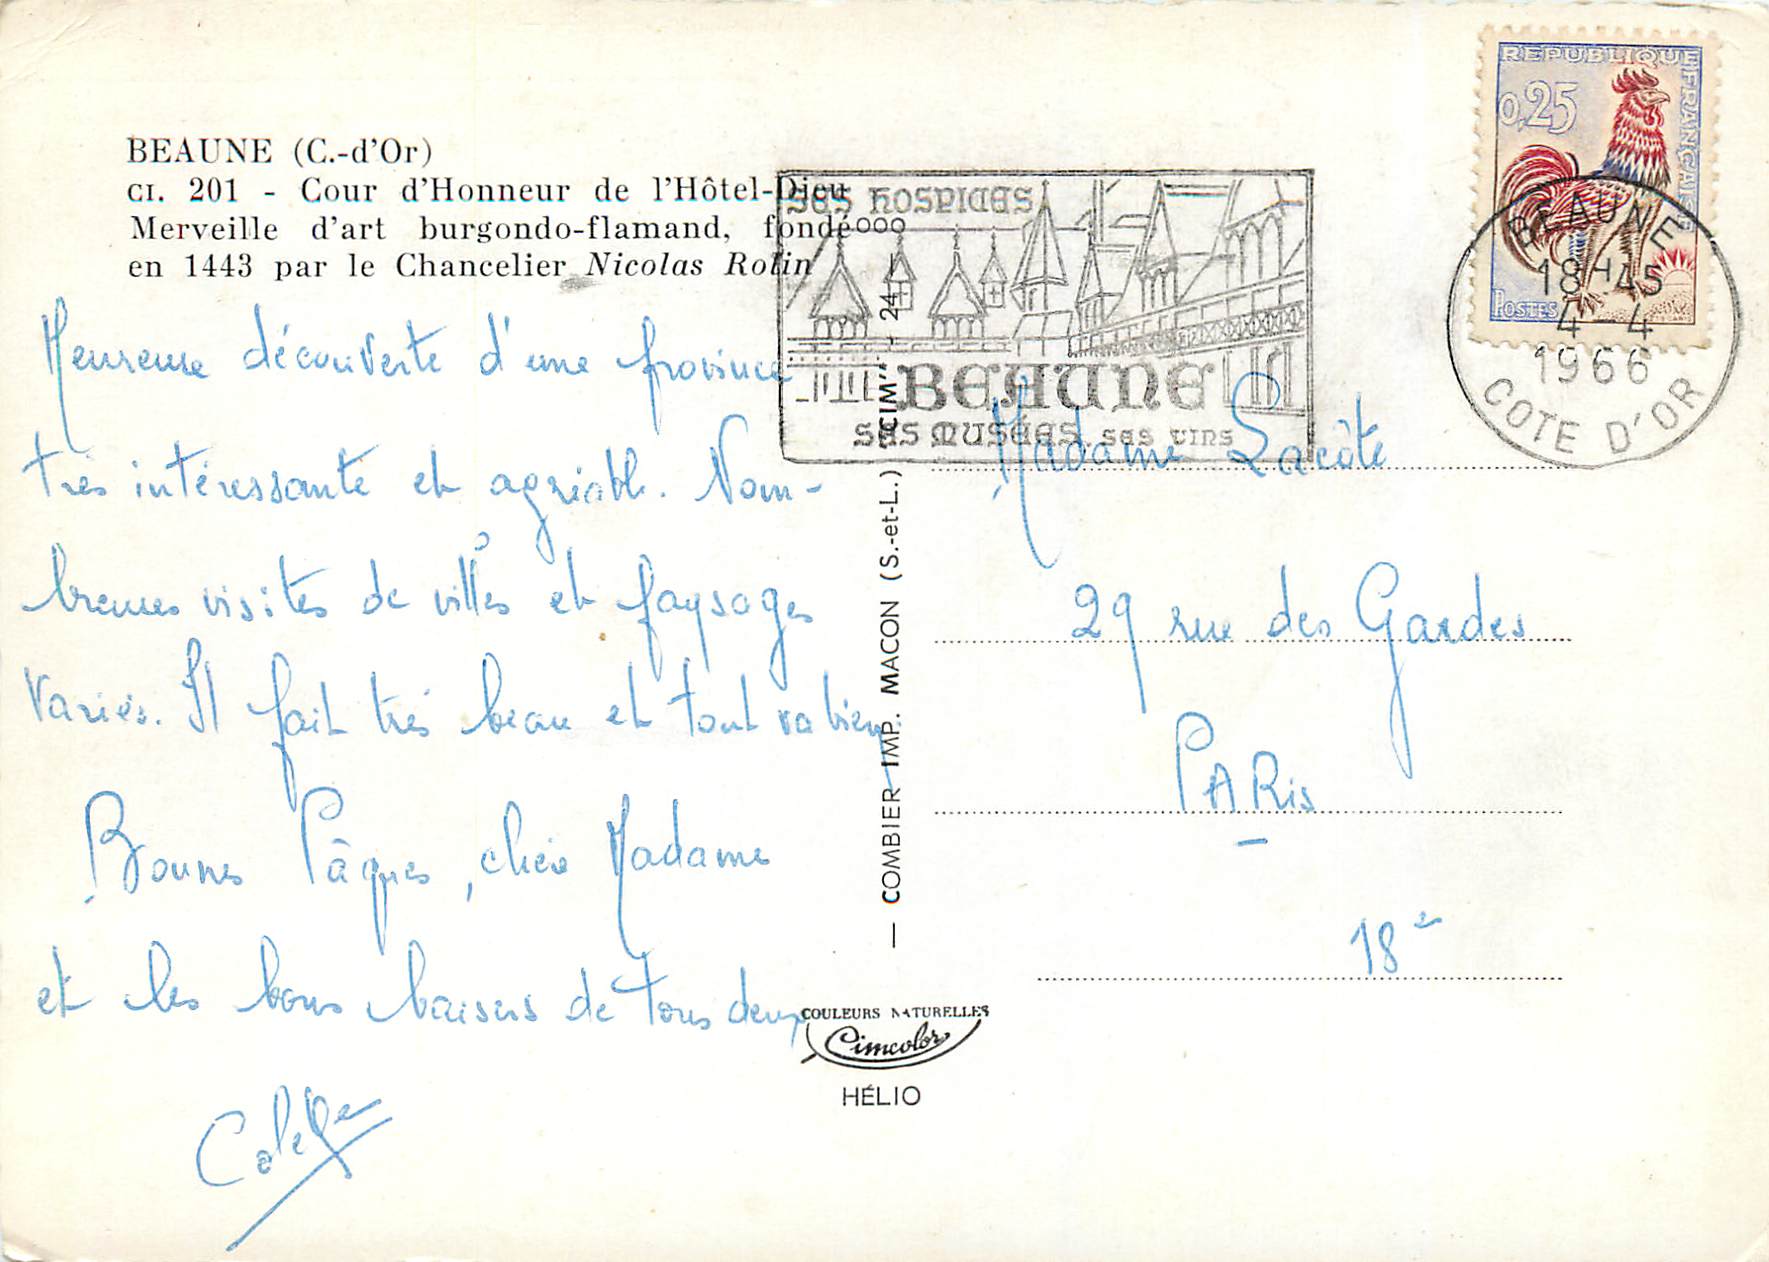 BEAUNE (C.-d'Or)
CI. 201 - Cour d'Honneur de l'Hôtel-Dieu
Merveille d'art burgondo-flamand, fondé
en 1443 par le Chancelier Nicolas Rolin
Heureuse découverte d'une province
très intéressante et agréable. Nom-
breuses visites de villes et paysages
variés. Il fait très beau et tout va bien.
Bonnes Pâques, chère Madame
et les bons baisers de tous deux
SES HOSPICES
BEAUNE
SES MUSÉES, SES VINS
REPUBLIQUE FRANÇAISE
0,25
POSTES
BEAUNE
18H45
4-4
1966
COTE D'OR
Madame Lacôte
29 rue des Gardes
PARis
18e
— COMBIER IMP. MACON (S.-et-L.) "CIM"
COULEURS NATURELLES
Cimcolor
HÉLIO